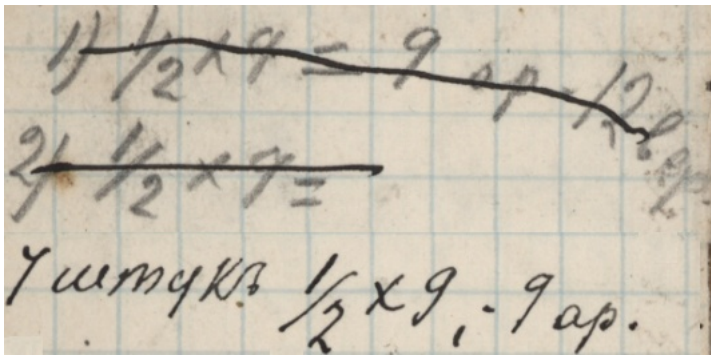 1) 1/2 × 9 = 9 ар. 12 вер.
2) 1/2 × 9 =
7 штукъ 1/2 × 9,- 9 ар.